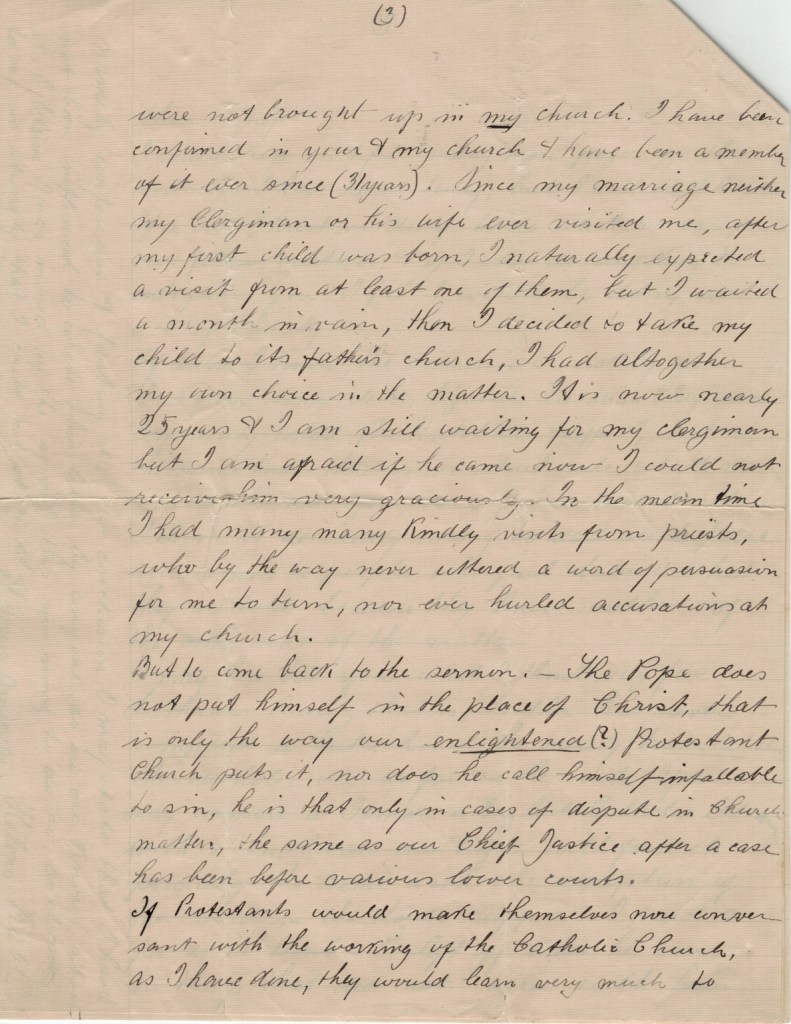 (3)
were not brought up in my church. I have been
confirmed in your & my church & have been a member
of it ever since (31 years). Since my marriage neither
my Clergiman or his wife ever visited me, after
my first child was born, I naturally expected
a visit from at least one of them, but I waited
a month in vain, then I decided to take my
child to its father's church, I had altogether
my own choice in the matter. It is now nearly
25 years & I am still waiting for my clergiman
but I am afraid if he came now I could not
receive him very graciously. In the mean time
I had many many kindly visits from priests,
who by the way never uttered a word of persuasion
for me to turn, nor ever hurled accusations at
my church.
But to come back to the sermon. — The Pope does
not put himself in the place of Christ, that
is only the way our enlightened (?) Protestant
Church puts it, nor does he call himself infallable
to sin, he is that only in cases of dispute in Church
matters, the same as our Chief Justice after a case
has been before various lower courts.
If Protestants would make themselves more conver
sant with the working of the Catholic Church,
as I have done, they would learn very much to